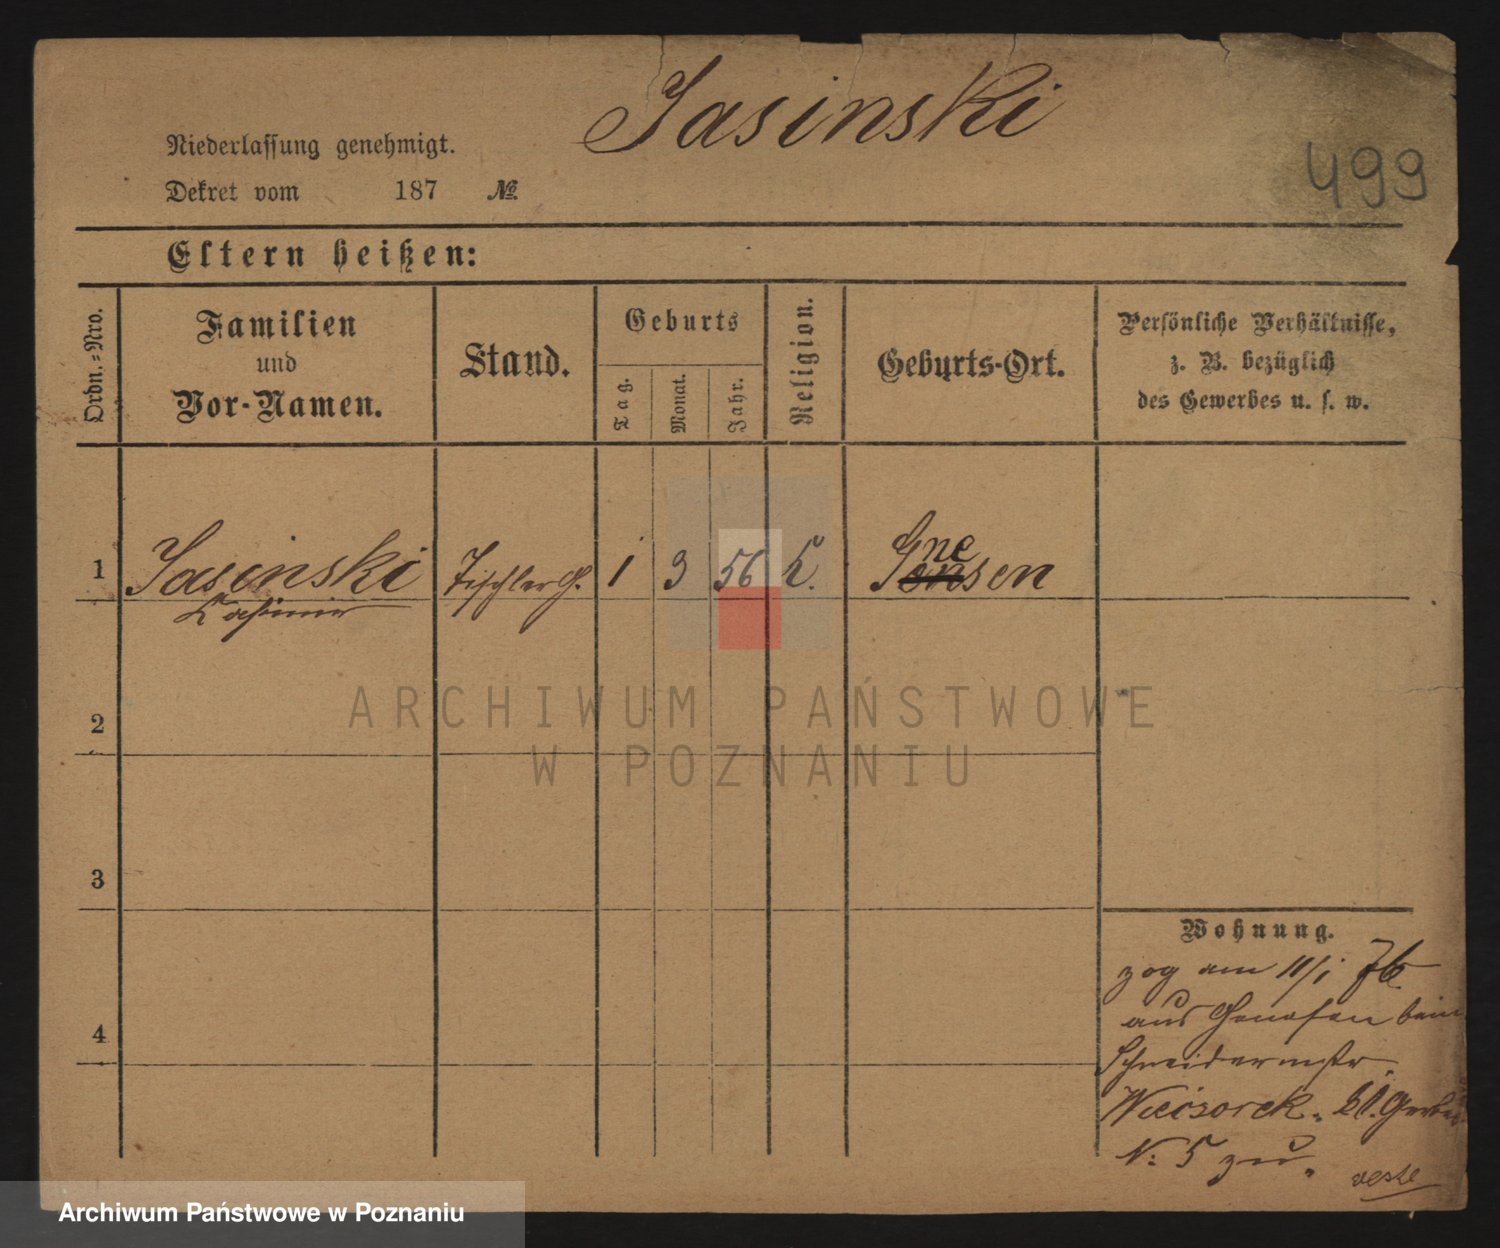 Jasinski
499
Niederlassung genehmigt.
Dekret vom 187 №.
Eltern heißen:
Ordn.=Nro.
Familien
und
Vor-Namen.
Stand.
Geburts
Tag.
Monat.
Jahr.
Religion.
Geburts-Ort.
Persönliche Verhältnisse,
z. B. bezüglich
des Gewerbes u. s. w.
1 Jasinski Tischlerg. 1 3 56 K. Gnesen
Casimir
2
3
4
Wohnung.
zog am 11/1 76
aus Gnesen beim
Schneidermstr.
Wieczorek. kl. Gerber
N: 5 zu.
ARCHIWUM PAŃSTWOWE
W POZNANIU
Archiwum Państwowe w Poznaniu